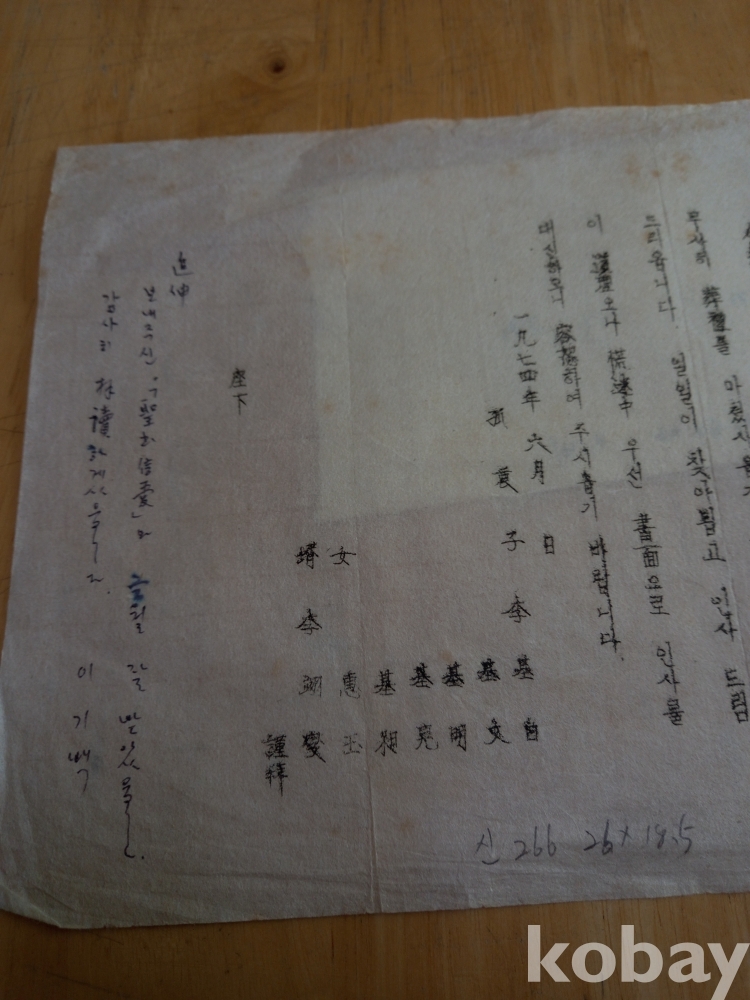 무사히 葬禮를 마쳤사옵기
드리옵니다. 일일이 찾아뵙고 인사 드림
이 道理오나 慌遽中 우선 書面으로 인사를
대신하오니 容恕하여 주시옵기 바랍니다.
一九七四年 六月 日
哀子 李基白
基文
基明
基
基相
女 惠玉
壻 李
謹拜
座下
追伸
보내주신 「聖書信愛」 달 받았음
감사히 拜讀하겠사옵니다.
이기백
신 266 26×18.5
kobay